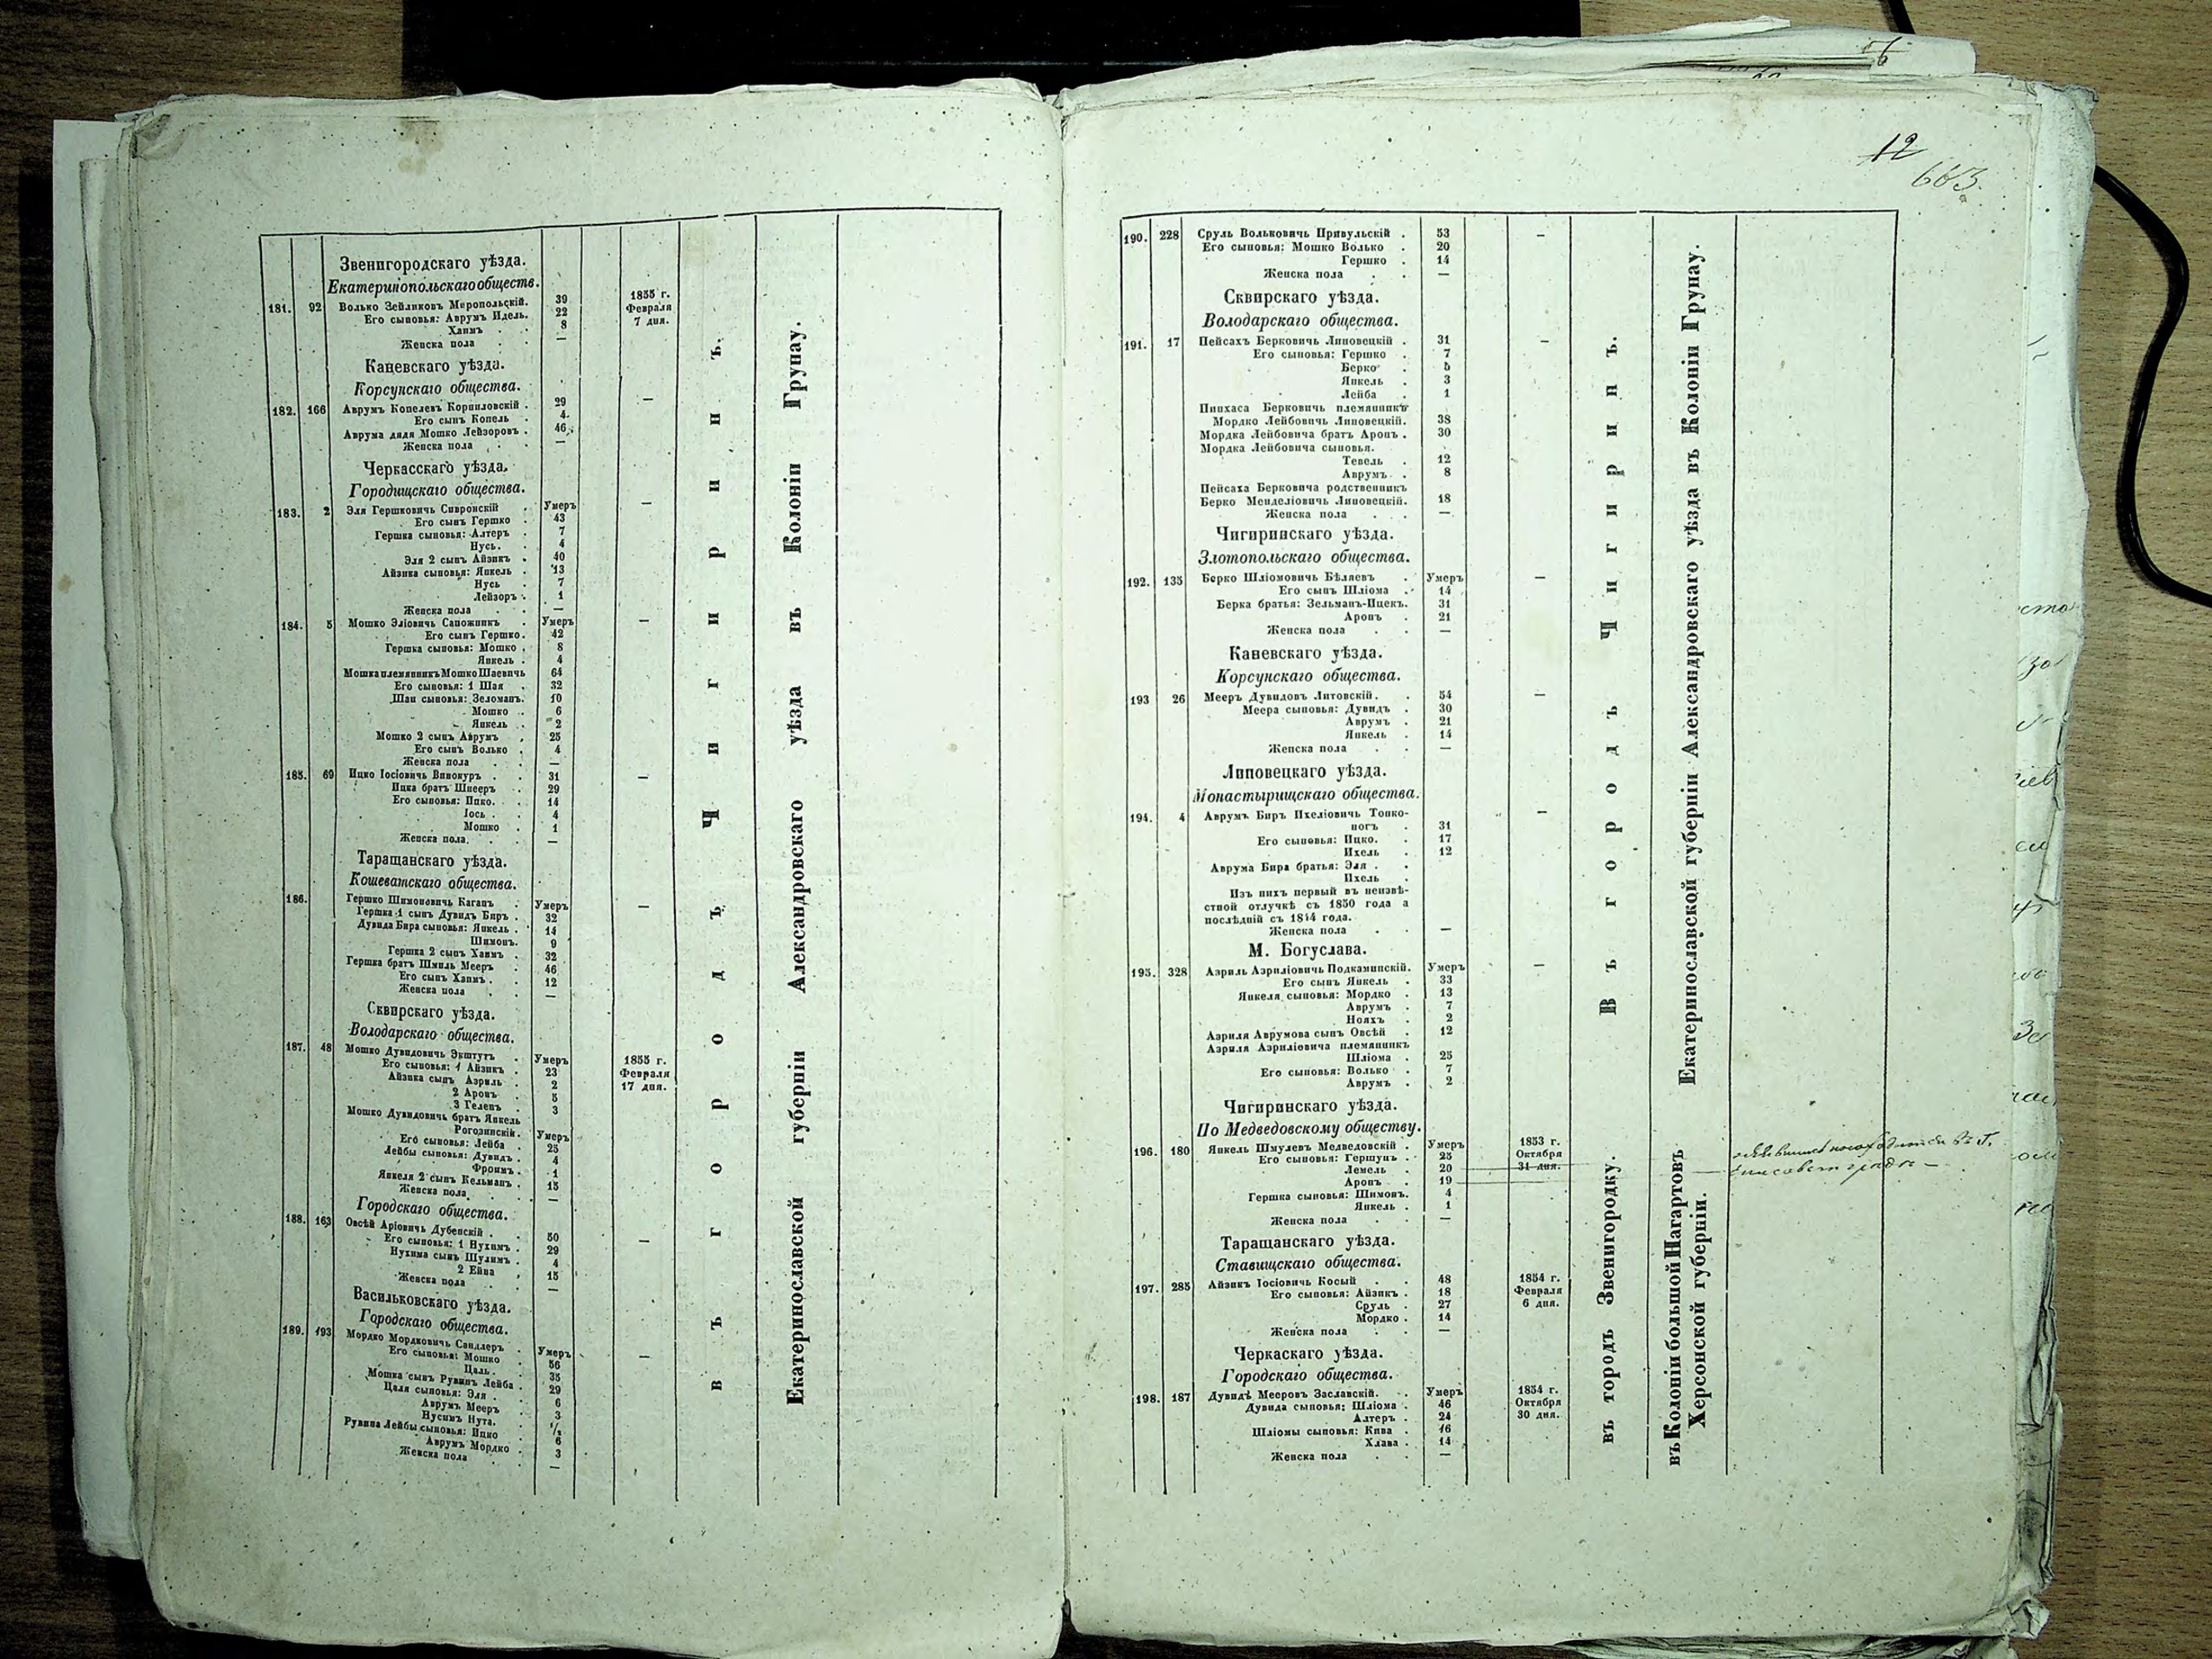 Звенигородскаго уѣзда.
Екатеринопольскаго обществ.
181. 92 Волько Зейликовъ Миропольскій. 39 1855 г.
Его сыновья: Аврумъ Идель. 22 Февраля
Хаимъ . 8 7 дня.
Женска пола . . —
Каневскаго уѣзда.
Корсунскаго общества.
182. 166 Аврумъ Копелевъ Корниловскій . 29 —
Его сынъ Копель . 4
Аврума дядя Мошко Лейзоровъ . 46
Женска пола . . —
Черкасскаго уѣзда.
Городищскаго общества.
183. 2 Эля Гершковичь Сивронскій . Умеръ —
Его сынъ Гершко . 43
Гершка сыновья: Алтеръ . 7
Нусь. . 4
Эля 2 сынъ Айзикъ . 40
Айзика сыновья: Янкель . 13
Нусь . 7
Лейзоръ . 1
Женска пола . . —
184. 5 Мошко Эліовичь Сапожникъ . Умеръ —
Его сынъ Гершко. 42
Гершка сыновья: Мошко . 8
Янкель . 4
Мошка племянникъ Мошко Шаевичь 64
Его сыновья: 1 Шая . 32
Шаи сыновья: Зеломанъ. 10
Мошко . 6
Янкель . 2
Мошко 2 сынъ Аврумъ . 25
Его сынъ Волько . 4
Женска пола . . —
185. 69 Ицко Іосіовичь Винокуръ . . 31 —
Ицка братъ Шнееръ . 29
Его сыновья: Ицко. . 14
Іось . . 4
Мошко . 1
Женска пола. . . —
Таращанскаго уѣзда.
Кошеватскаго общества.
186. Гершко Шимоновичь Каганъ . Умеръ —
Гершка 1 сынъ Дувидъ Биръ . 32
Дувида Бира сыновья: Янкель . 14
Шимонъ. 9
Гершка 2 сынъ Хаимъ . 32
Гершка братъ Шмиль Мееръ . 46
Его сынъ Хаимъ . . 12
Женска пола . . —
Сквирскаго уѣзда.
Володарскаго общества.
187. 48 Мошко Дувидовичь Экштутъ . Умеръ 1855 г.
Его сыновья: 1 Айзикъ . 23 Февраля
Айзика сынъ Азриль . 2 17 дня.
2 Аронъ . 5
3 Геленъ . 3
Мошко Дувидовичь братъ Янкель
Рогозинскій. Умеръ
Его сыновья: Лейба . 25
Лейбы сыновья: Дувидъ . 4
Фроимъ . 1
Янкеля 2 сынъ Кельманъ . 15
Женска пола. . . —
Городскаго общества.
188. 163 Овсѣй Аріовичь Дубенскій . . 50 —
Его сыновья: 1 Нухимъ . 29
Нухима сынъ Шулимъ . 4
2 Ейна . 15
Женска пола . . —
Васильковскаго уѣзда.
Городскаго общества.
189. 193 Мордко Мордковичь Сандлеръ . Умеръ —
Его сыновья: Мошко . 56
Цаль. . 35
Мошка сынъ Рувинъ Лейба . 29
Цаля сыновья: Эля . . 6
Аврумъ Мееръ . 3
Нусимъ Нута. . ½
Рувина Лейбы сыновья: Ицко . 6
Аврумъ Мордко . 3
Женска пола . . —
въ городъ Чигиринъ.
Екатеринославской губерніи Александровскаго уѣзда въ Колоніи Грунау.
12
663.
190. 228 Сруль Вольковичь Привульскій . 53 —
Его сыновья: Мошко Волько . 20
Гершко . 14
Женска пола . . —
Сквирскаго уѣзда.
Володарскаго общества.
191. 17 Пейсахъ Берковичь Липовецкій . 31 —
Его сыновья: Гершко . 7
Берко . 5
Янкель . 3
Лейба . 1
Пинхаса Берковичь племянникъ
Мордко Лейбовичь Липовецкій. 38
Мордка Лейбовича братъ Аронъ . 30
Мордка Лейбовича сыновья.
Тевель . 12
Аврумъ . 8
Пейсаха Берковича родственникъ
Берко Менделіовичь Липовецкій. 18
Женска пола . . —
Чигиринскаго уѣзда.
Злотопольскаго общества.
192. 135 Берко Шліомовичь Бѣляевъ . Умеръ —
Его сынъ Шліома . 14
Берка братья: Зельманъ-Ицекъ. 31
Аронъ . 21
Женска пола . . —
Каневскаго уѣзда.
Корсунскаго общества.
193 26 Мееръ Дувидовъ Литовскій. . 54 —
Меера сыновья: Дувидъ . 30
Аврумъ . 21
Янкель . 14
Женска пола . . —
Липовецкаго уѣзда.
Монастырищскаго общества.
194. 4 Аврумъ Биръ Ихеліовичь Тонко- —
ногъ . 31
Его сыновья: Ицко. . 17
Ихель . 12
Аврума Бира братья: Эля . .
Ихель .
Изъ нихъ первый въ неизвѣ-
стной отлучкѣ съ 1850 года а
послѣдній съ 1844 года.
Женска пола . . —
М. Богуслава.
195. 328 Азриль Азриліовичь Подкаминскій. Умеръ —
Его сынъ Янкель . 33
Янкеля сыновья: Мордко . 13
Аврумъ . 7
Нояхъ . 2
Азриля Аврумова сынъ Овсѣй . 12
Азриля Азриліовича племянникъ
Шліома . 25
Его сыновья: Волько . 7
Аврумъ . 2
Чигиринскаго уѣзда.
По Медведовскому обществу.
196. 180 Янкель Шмулевъ Медведовскій . Умеръ 1853 г.
Его сыновья: Гершунъ . 25 Октября
Лемель . 20 31 дня.
Аронъ . 19
Гершка сыновья: Шимонъ. 4
Янкель . 1
Женска пола . . —
Таращанскаго уѣзда.
Ставищскаго общества.
197. 285 Айзикъ Іосіовичь Косый . . 48 1854 г.
Его сыновья: Айзикъ . 18 Февраля
Сруль . 27 6 дня.
Мордко . 14
Женска пола . . —
Черкаскаго уѣзда.
Городскаго общества.
198. 187 Дувидъ Мееровъ Заславскій. . Умеръ 1854 г.
Дувида сыновья: Шліома . 46 Октября
Алтеръ . 24 30 дня.
Шліомы сыновья: Кива . 16
Хлава . 14
Женска пола . . —
Въ городъ Чигиринъ.
въ городъ Звенигородку.
Екатеринославской губерніи Александровскаго уѣзда въ Колоніи Грунау.
въ Колоніи большой Нагартовъ
Херсонской губерніи.